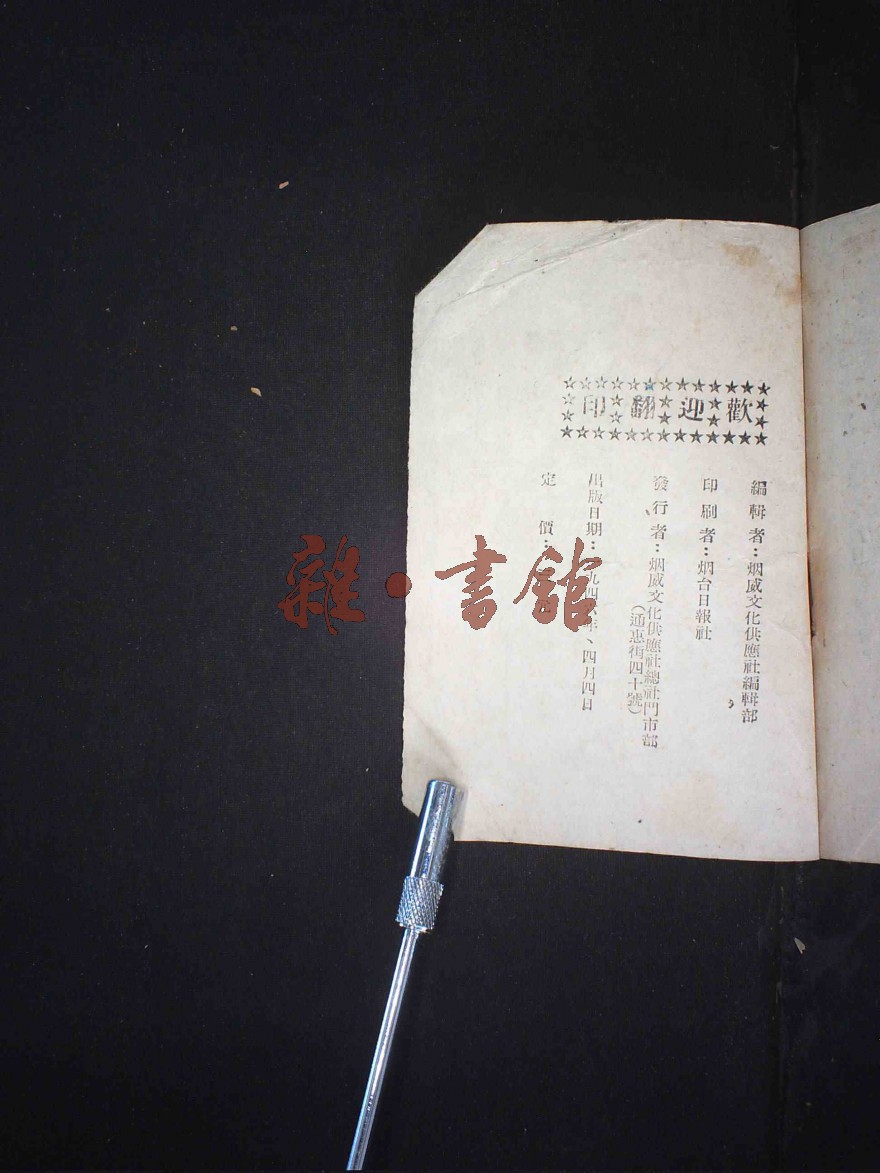 歡迎翻印
編輯者：烟威文化供應社編輯部
印刷者：烟台日報社
發行者：烟威文化供應社總社門市部
（通惠街四十號）
出版日期：九四六年、四月四日
定價：
雜·書館